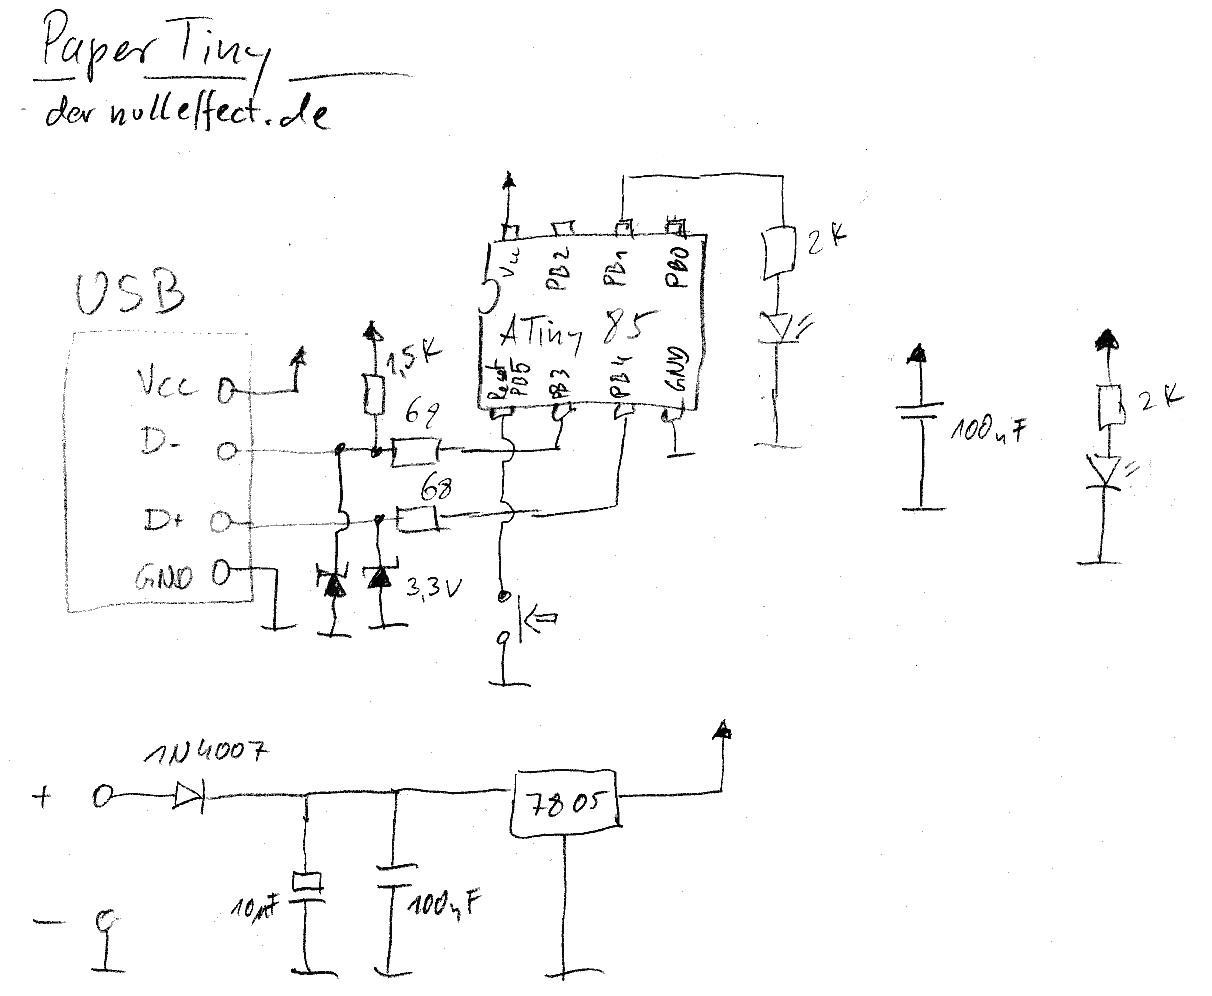 Paper Tiny
der nulleffect.de
USB
Vcc
D-
D+
GND
1,5K
68
3,3V
Vcc
PB2
PB1
PB0
ATiny 85
Reset
PB5
PB3
PB4
GND
2K
100nF
2K
1N4007
+
-
10µF
100nF
7805